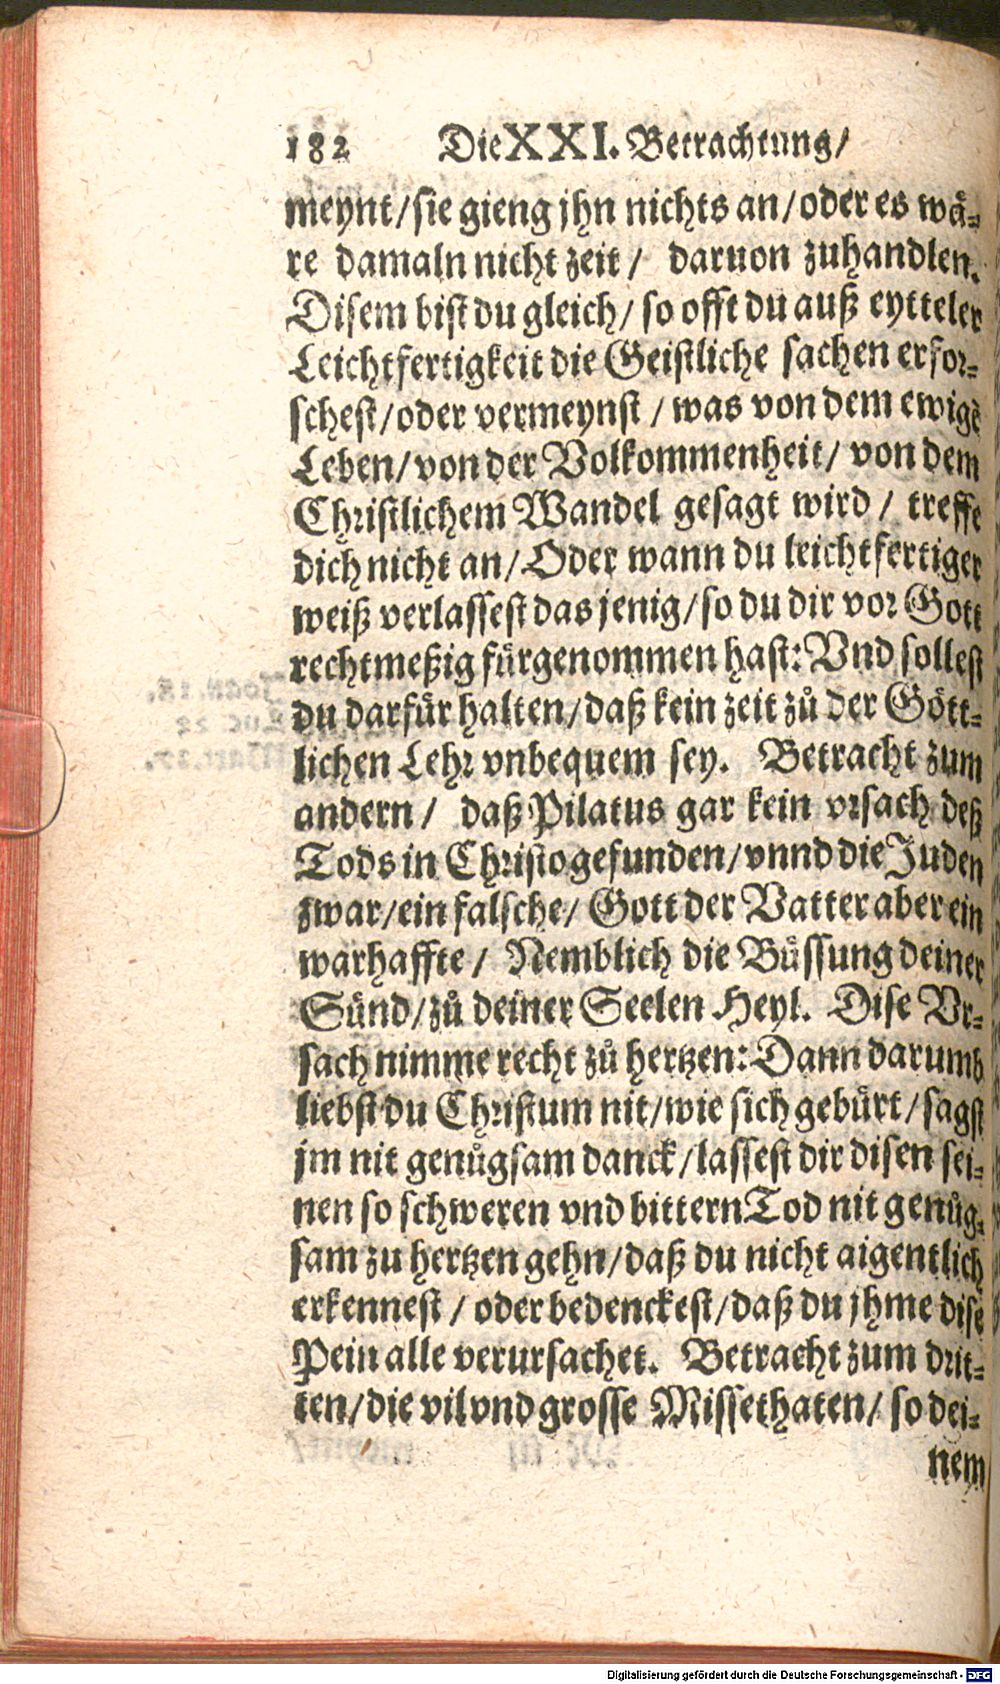 182 Die XXI. Betrachtung/
meynt/sie gieng jhn nichts an/oder es wå-
re damaln nicht zeit/ daruon zuhandlen.
Disem bist du gleich/ so offt du auß eytteler
Leichtfertigkeit die Geistliche sachen erfor-
schest/oder vermeynst/was von dem ewigē
Leben/von der Volkommenheit/ von dem
Christlichem Wandel gesagt wird/ treffe
dich nicht an/Oder wann du leichtfertiger
weiß verlassest das jenig/so du dir vor Gott
rechtmeßig fürgenommen hast: Vnd sollest
du darfür halten/daß kein zeit zů der Gött-
lichen Lehr vnbequem sey. Betracht zum
andern/ daß Pilatus gar kein vrsach deß
Tods in Christo gefunden/vnnd die Juden
zwar/ein falsche/ Gott der Vatter aber ein
warhaffte/ Nemblich die Büssung deiner
Sünd/zů deiner Seelen Heyl. Dise Vr-
sach nimme recht zů hertzen: Dann darumb
liebst du Christum nit/wie sich gebürt/sagst
jm nit genůgsam danck/lassest dir disen sei-
nen so schweren vnd bittern Tod nit genůg-
sam zu hertzen gehn/daß du nicht aigentlich
erkennest/ oder bedenckest/daß du jhme dise
Pein alle verursachet. Betracht zum drit-
ten/die vil vnd grosse Missethaten/ so dei-
nem
Digitalisierung gefördert durch die Deutsche Forschungsgemeinschaft - DFG